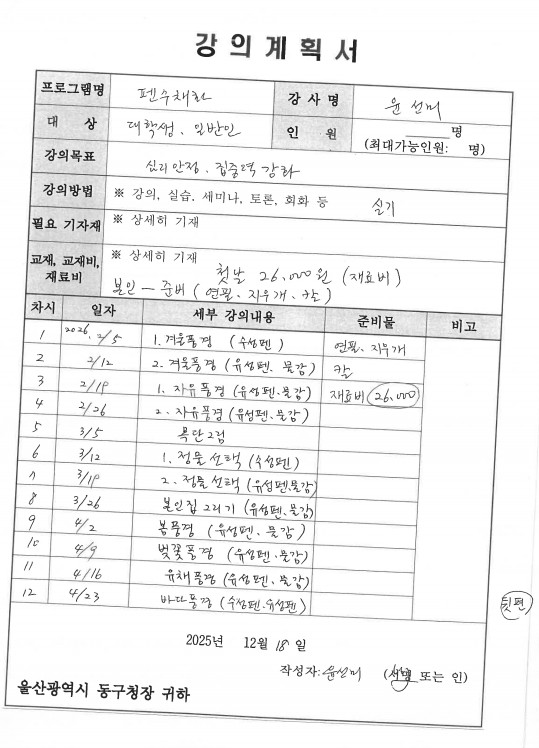 강의계획서
프로그램명 펜수채화 강사명 윤선미
대 상 대학생, 일반인 인 원 ______명
(최대가능인원: 명)
강의목표 심리안정, 집중력 강화
강의방법 ※ 강의, 실습, 세미나, 토론, 회화 등 실기
필요 기자재 ※ 상세히 기재
교재, 교재비, 재료비 ※ 상세히 기재
첫날 26,000원 (재료비)
본인 - 준비 (연필, 지우개, 칼)
차시 일자 세부 강의내용 준비물 비고
1 2026. 2/5 1. 겨울풍경 (수성펜) 연필, 지우개
2 2/12 2. 겨울풍경 (유성펜, 물감) 칼
3 2/19 1. 자유풍경 (유성펜, 물감) 재료비 26,000
4 2/26 2. 자유풍경 (유성펜, 물감)
5 3/5 목단그림
6 3/12 1. 정물선택 (수성펜)
7 3/19 2. 정물선택 (유성펜, 물감)
8 3/26 본인집 그리기 (유성펜, 물감)
9 4/2 봄풍경 (유성펜, 물감)
10 4/9 벚꽃풍경 (유성펜, 물감)
11 4/16 유채풍경 (유성펜, 물감)
12 4/23 바다풍경 (수성펜, 유성펜)
뒷편
2025년 12월 18일
작성자: 윤선미 (서명 또는 인)
울산광역시 동구청장 귀하